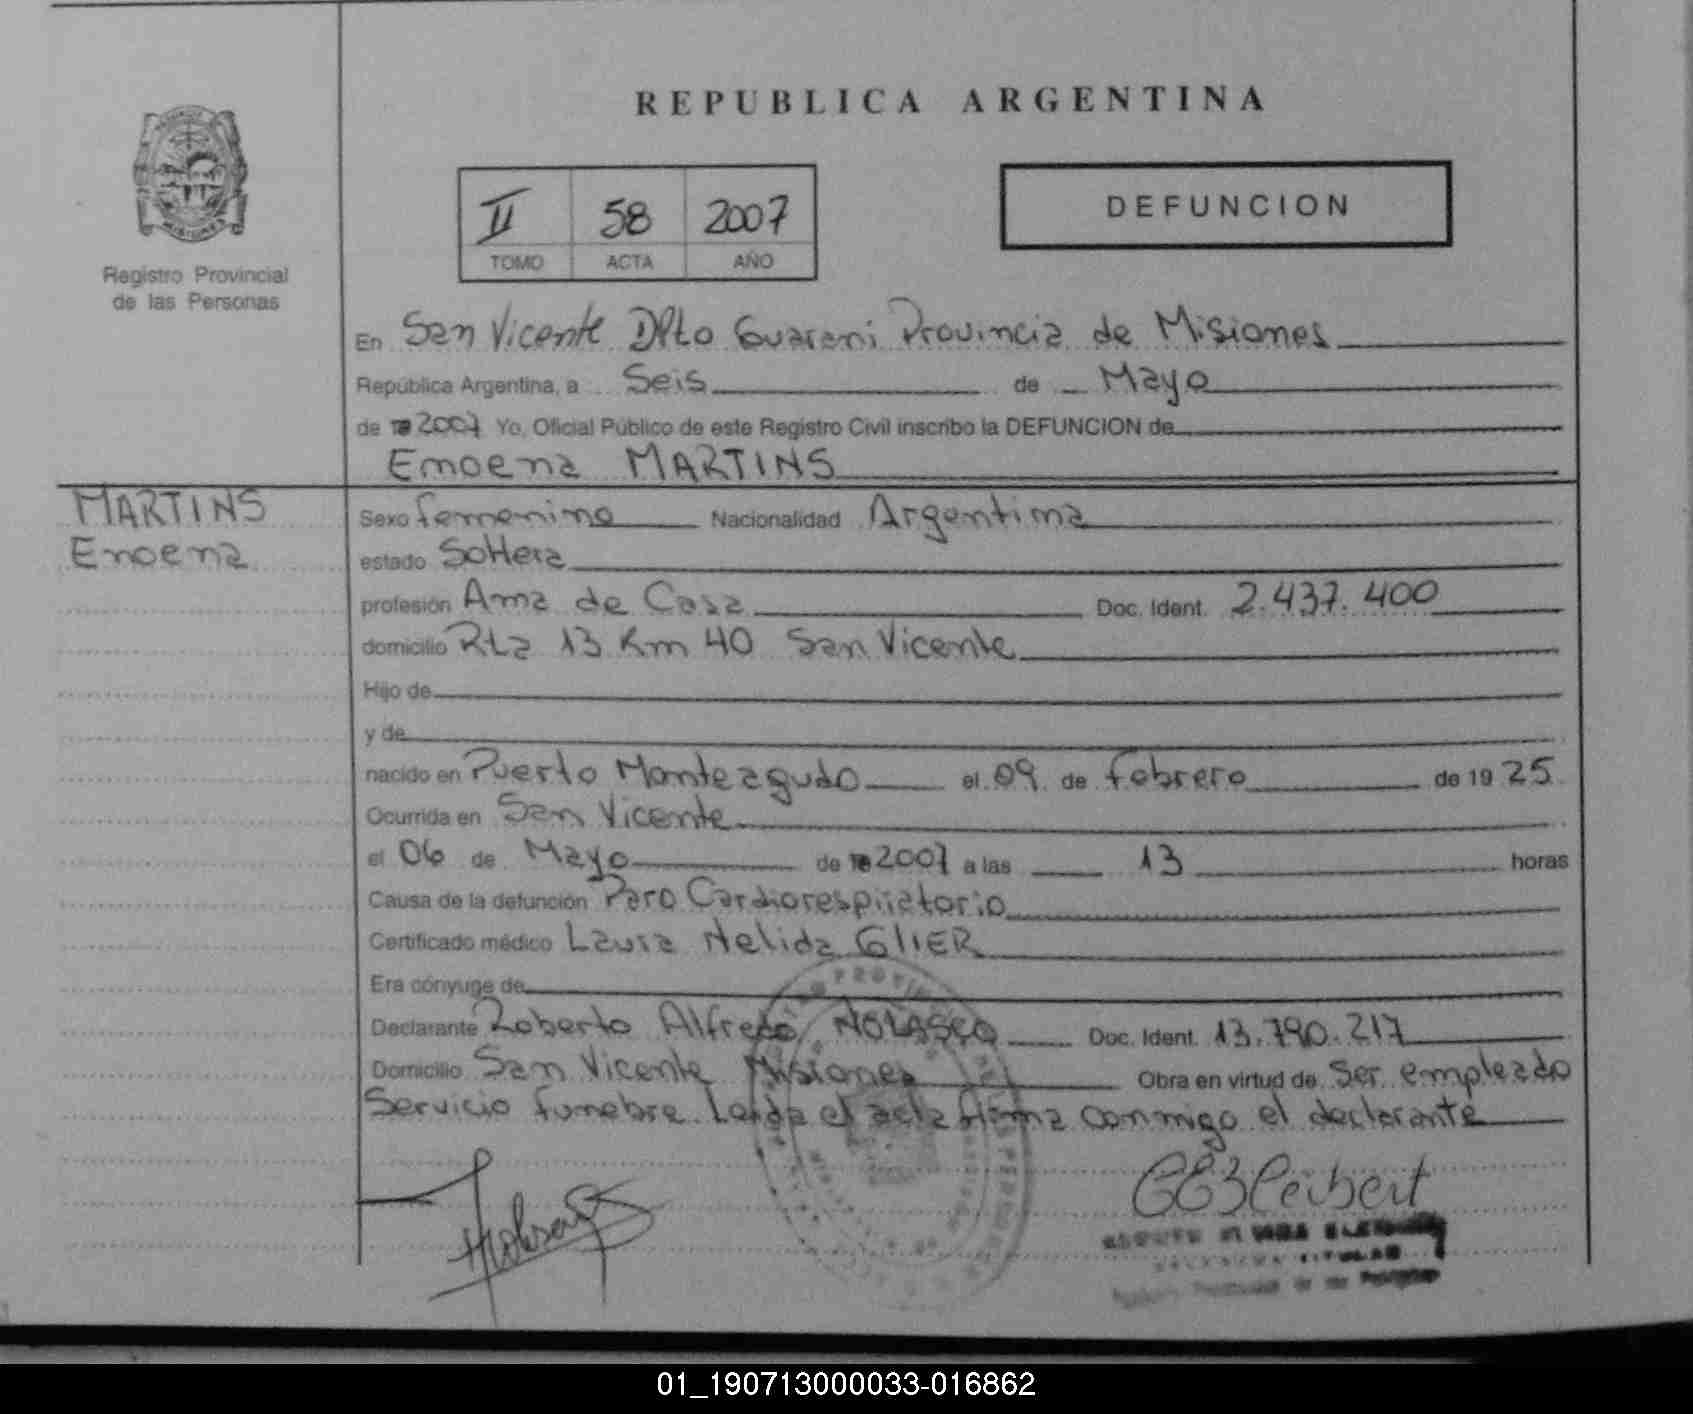 REPUBLICA ARGENTINA
II 58 2007
TOMO ACTA AÑO
DEFUNCION
Registro Provincial
de las Personas
En San Vicente Dpto Guarani Provincia de Misiones
República Argentina, a Seis de Mayo
de 2007 Yo, Oficial Público de este Registro Civil inscribo la DEFUNCION de
Emoena MARTINS
MARTINS
Emoena
Sexo femenino Nacionalidad Argentina
estado Soltera
profesión Ama de Casa Doc. Ident. 2.437.400
domicilio Rta 13 Km 40 San Vicente
Hijo de
y de
nacido en Puerto Monteagudo el 09 de febrero de 1925
Ocurrida en San Vicente
el 06 de Mayo de 2007 a las 13 horas
Causa de la defunción Paro Cardiorespiratorio
Certificado médico Laura Nelida GLIER
Era cónyuge de
Declarante Roberto Alfredo NOLASCO Doc. Ident. 13.790.217
Domicilio San Vicente Misiones Obra en virtud de Ser empleado
Servicio funebre Leida el acta firma conmigo el declarante
01_190713000033-016862